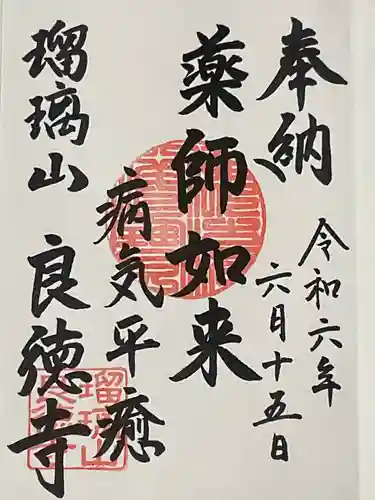 奉納
令和六年
六月十五日
薬師如来
病気平癒
瑠璃山
良徳寺
瑠璃山
良徳寺